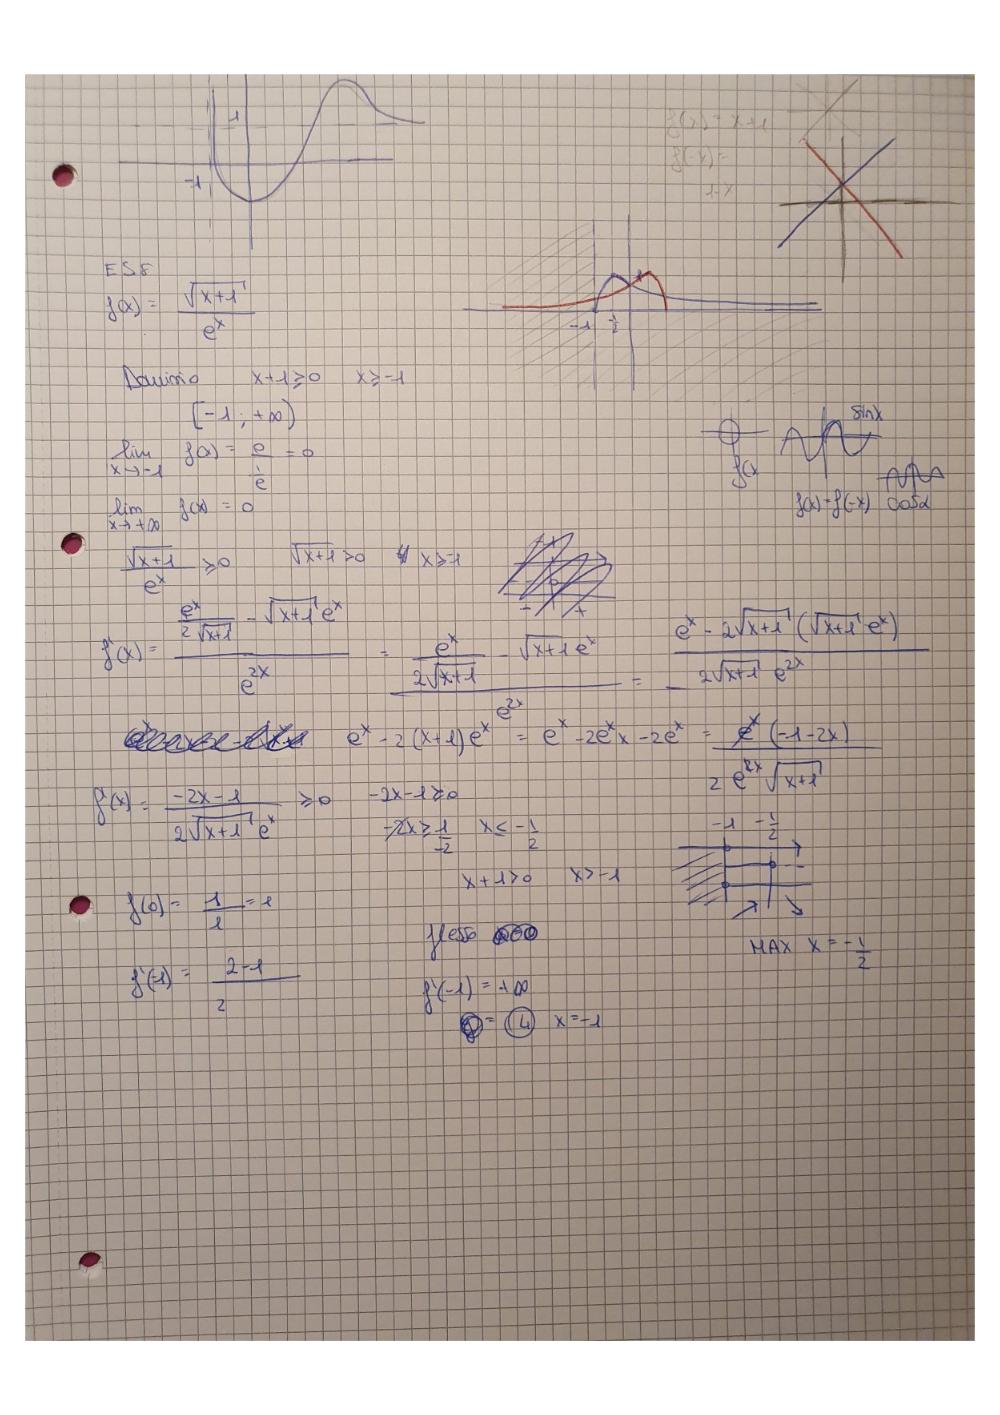 1
-1
f(x) = x+1
f(-x) =
1-x
ES 8
f(x) = √(x+1) / e^x
-1 -1/2
Dominio x+1≥0 x≥-1
[-1; +∞)
lim x→-1 f(x) = 0 / (1/e) = 0
lim x→+∞ f(x) = 0
sin x
f(x) = f(-x) cos x
√(x+1) / e^x ≥0 √(x+1) >0 ∀ x≥-1
- + - 0 - +
f'(x) = (e^x / 2√(x+1) - √(x+1) e^x) / e^2x = (e^x / 2√(x+1) - √(x+1) e^x) / e^2x = (e^x - 2√(x+1) (√(x+1) e^x)) / 2√(x+1) e^2x
e^x - 2(x+1)e^x = e^x - 2e^x x - 2e^x = e^x (-1-2x) / 2 e^2x √(x+1)
f'(x) = (-2x-1) / (2√(x+1) e^x) ≥0 -2x-1≥0
-2x ≥ 1/-2 x ≤ -1/2
-1 -1/2
x+1>0 x>-1
f(0) = 1/1 = 1
flesso
MAX x = -1/2
f'(-1) = (2-1) / 2
f'(-1) = +∞
= x=-1